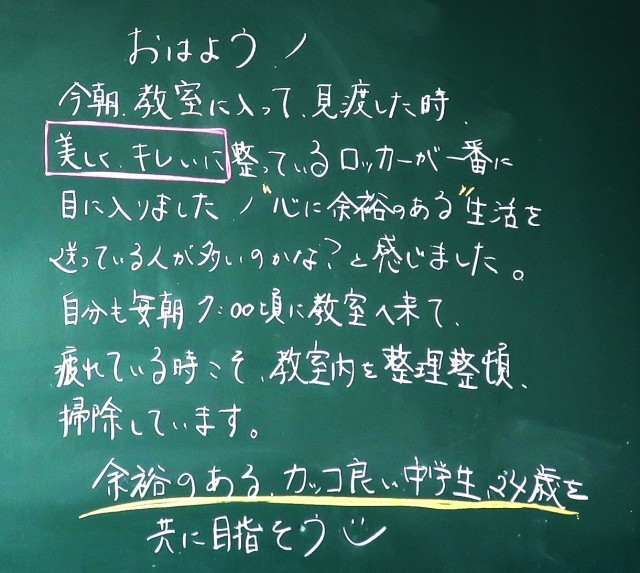 おはよう!
今朝、教室に入って、見渡した時、
美しく、キレいに整っているロッカーが一番に
目に入りました!"心に余裕のある"生活を
送っている人が多いのかな?と感じました。
自分も毎朝7:00頃に教室へ来て、
疲れている時こそ、教室内を整理整頓、
掃除しています。
余裕のある、カッコ良い中学生、24歳を
共に目指そう